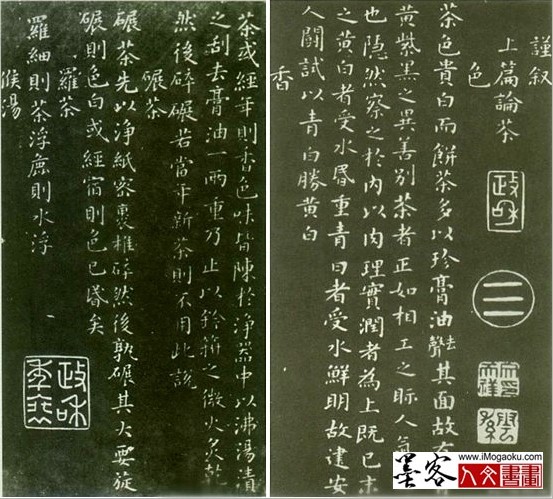 謹叙
上篇論茶
色
茶色貴白而餅茶多以珍膏油去聲其面故有
黄紫黑之異善别茶者正如相工之眎人氣
也隐然察之於内以肉理實潤者為上既已末
之黄白者受水昏重青白者受水鮮明故建安
人鬭試以青白勝黄白
香
茶或經年則香色味皆陳於淨器中以沸湯漬
之刮去膏油一兩重乃止以鈐箝之微火炙乾
然後碎碾若當年新茶則不用此說
碾茶
碾茶先以淨紙密裹槌碎然後熟碾其大要旋
碾則色白或經宿則色已昏矣
羅茶
羅細則茶浮麁則水浮
候湯
政和
政和
www.iMogaoku.com
墨客
人文書畫